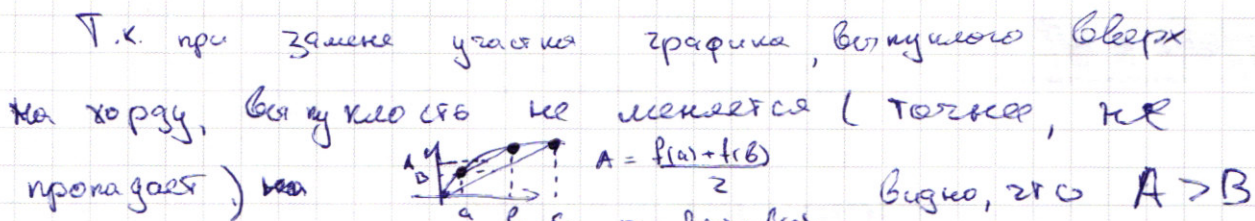 Т.к. при замене участка графика, выпуклого вверх
на хорду, выпуклость не меняется (точнее, не
пропадает) A = f(a)+f(b) / 2 видно, что A > B
A y
B
a b c